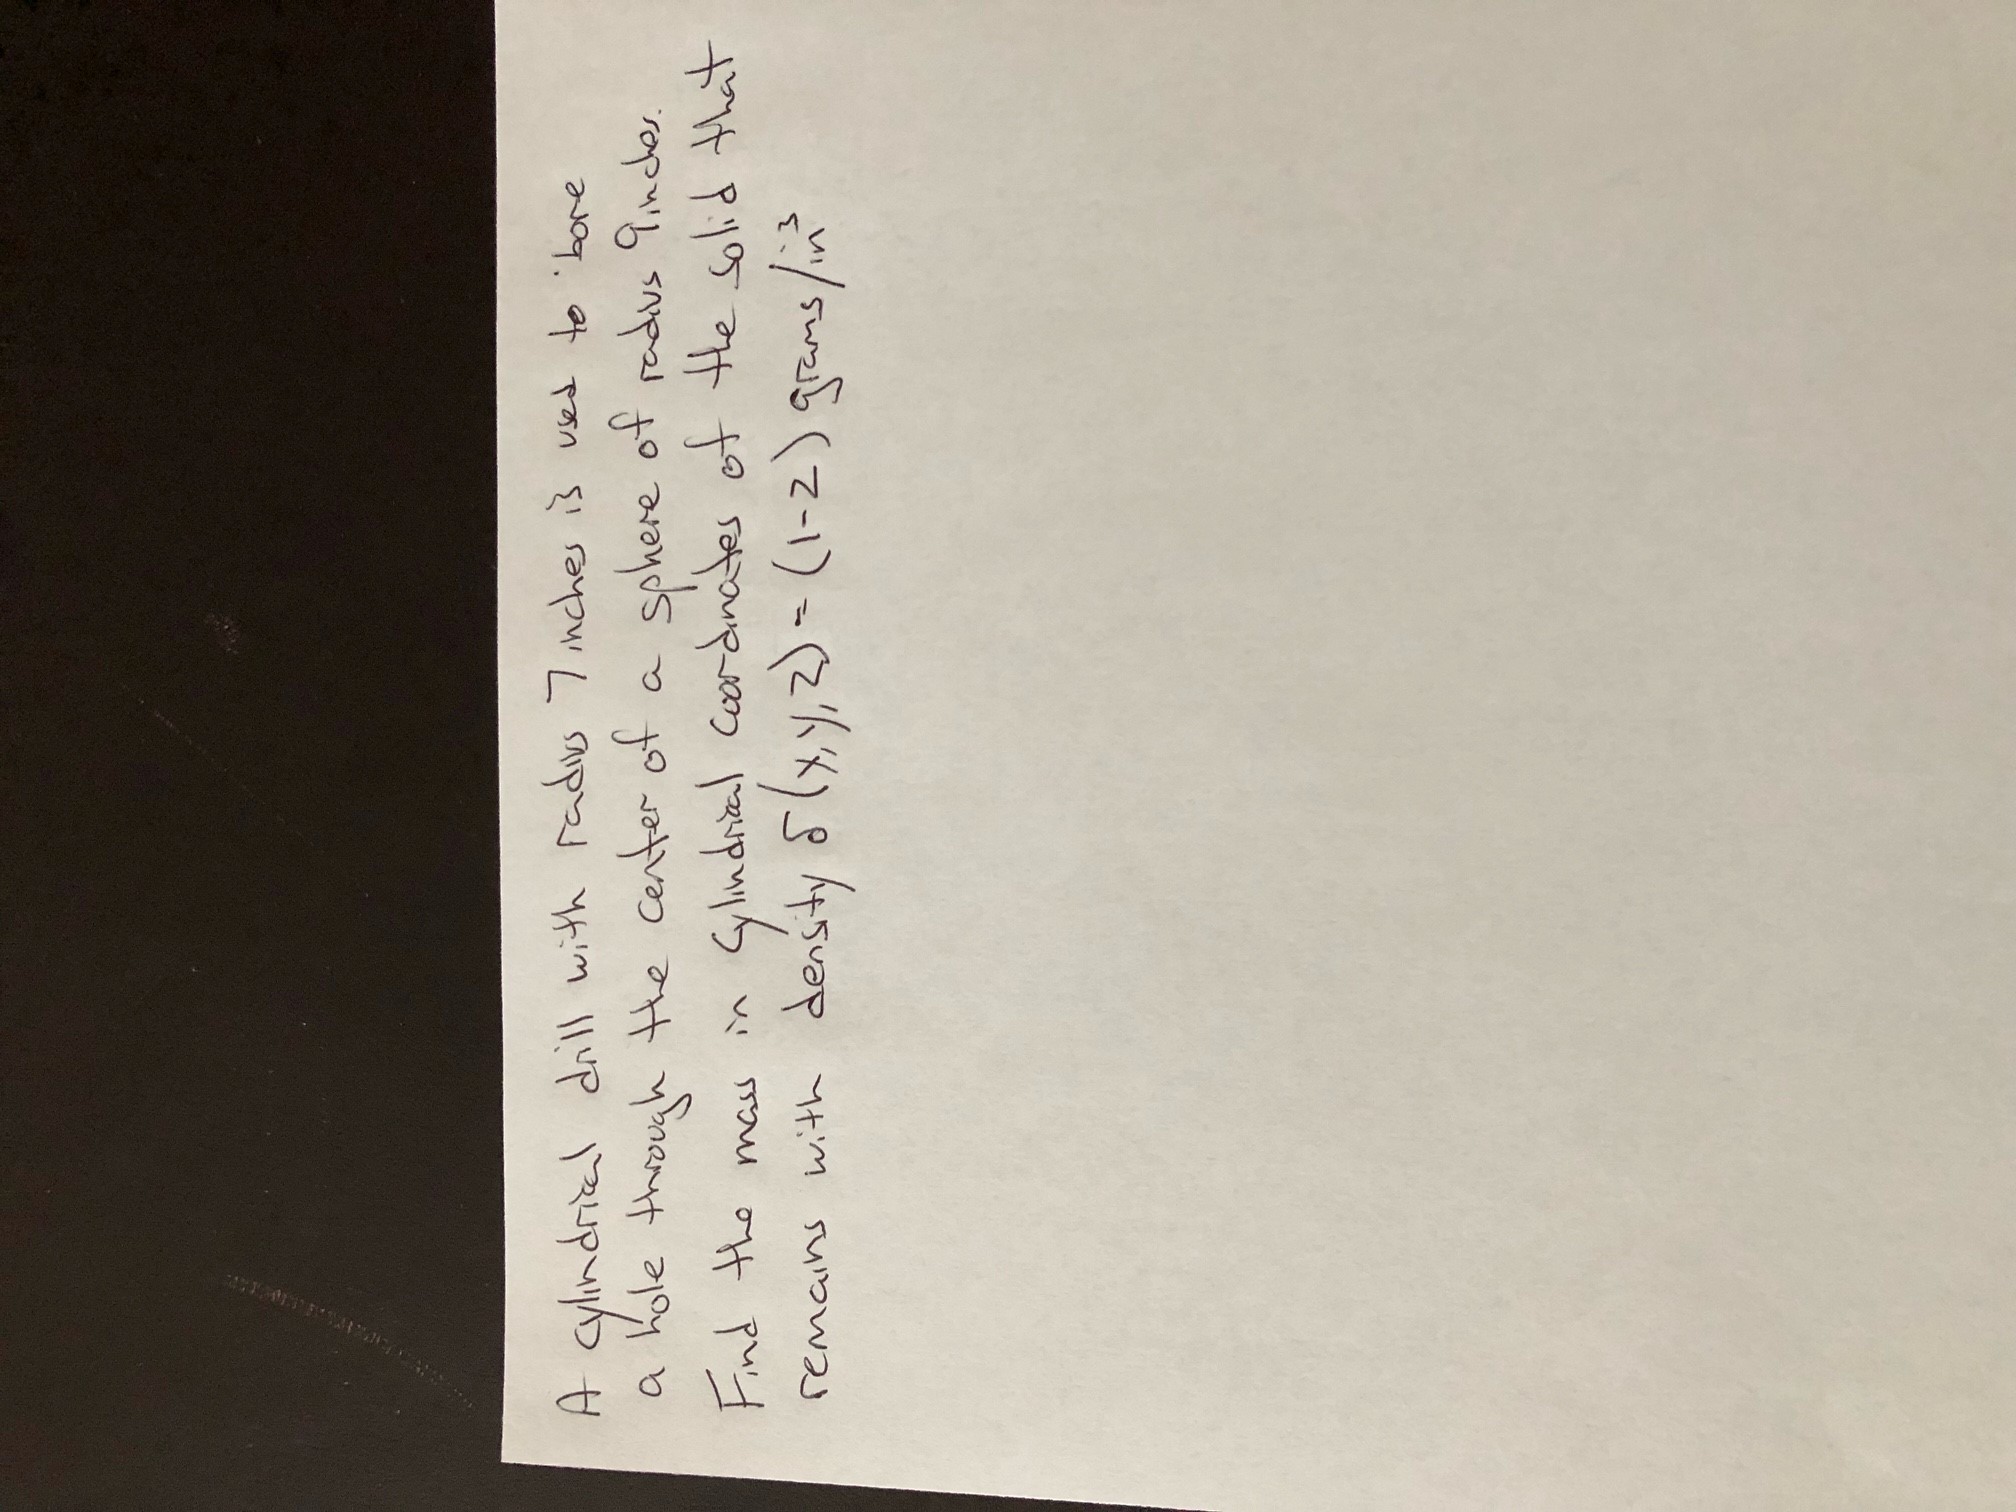 A cylindrical drill with radius 7 inches is used to bore
a hole through the center of a sphere of radius 9 inches.
Find the mass in cylindrical coordinates of the solid that
remains with density δ(x,y,z) = (1-z) grams/in³